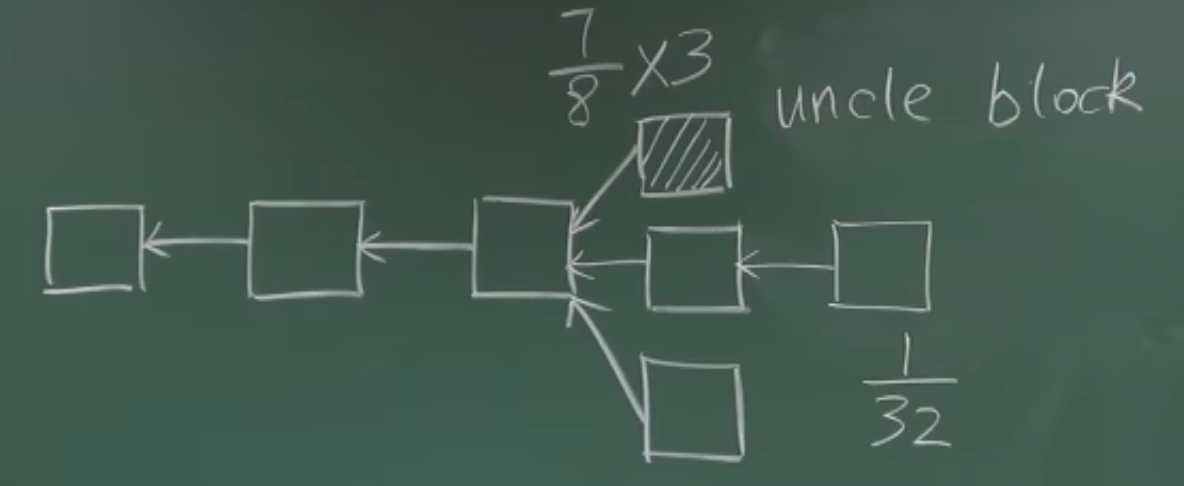 7/8 ×3
uncle block
1/32